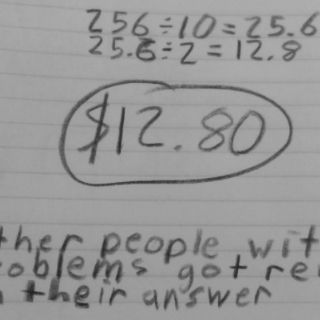 256÷10=25.6
25.6÷2=12.8
$12.80
ther people wit
oblems got re
their answer